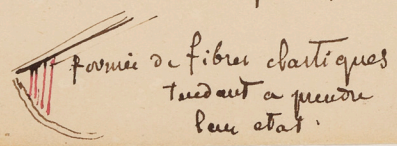 formée de fibres elastiques
tendant a prendre
leur etat.